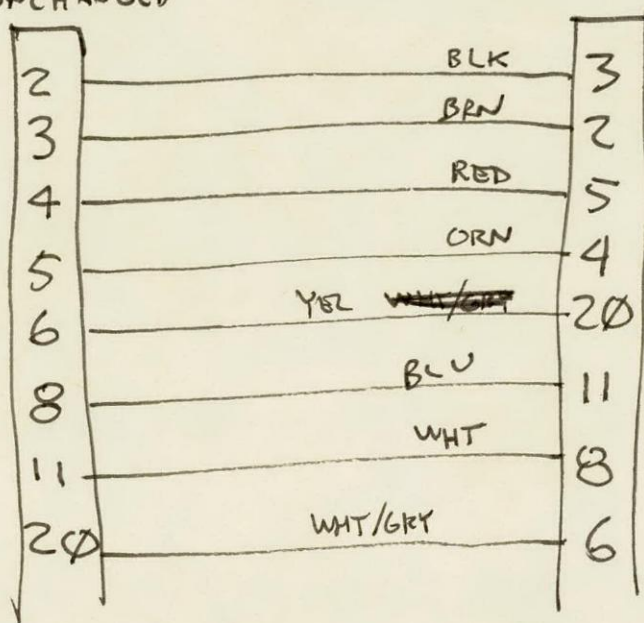 UNCHANGED
2 BLK 3
3 BRN 2
4 RED 5
5 ORN 4
6 YEL WHT/GRY 2Ø
8 BLU 11
11 WHT 8
2Ø WHT/GRY 6